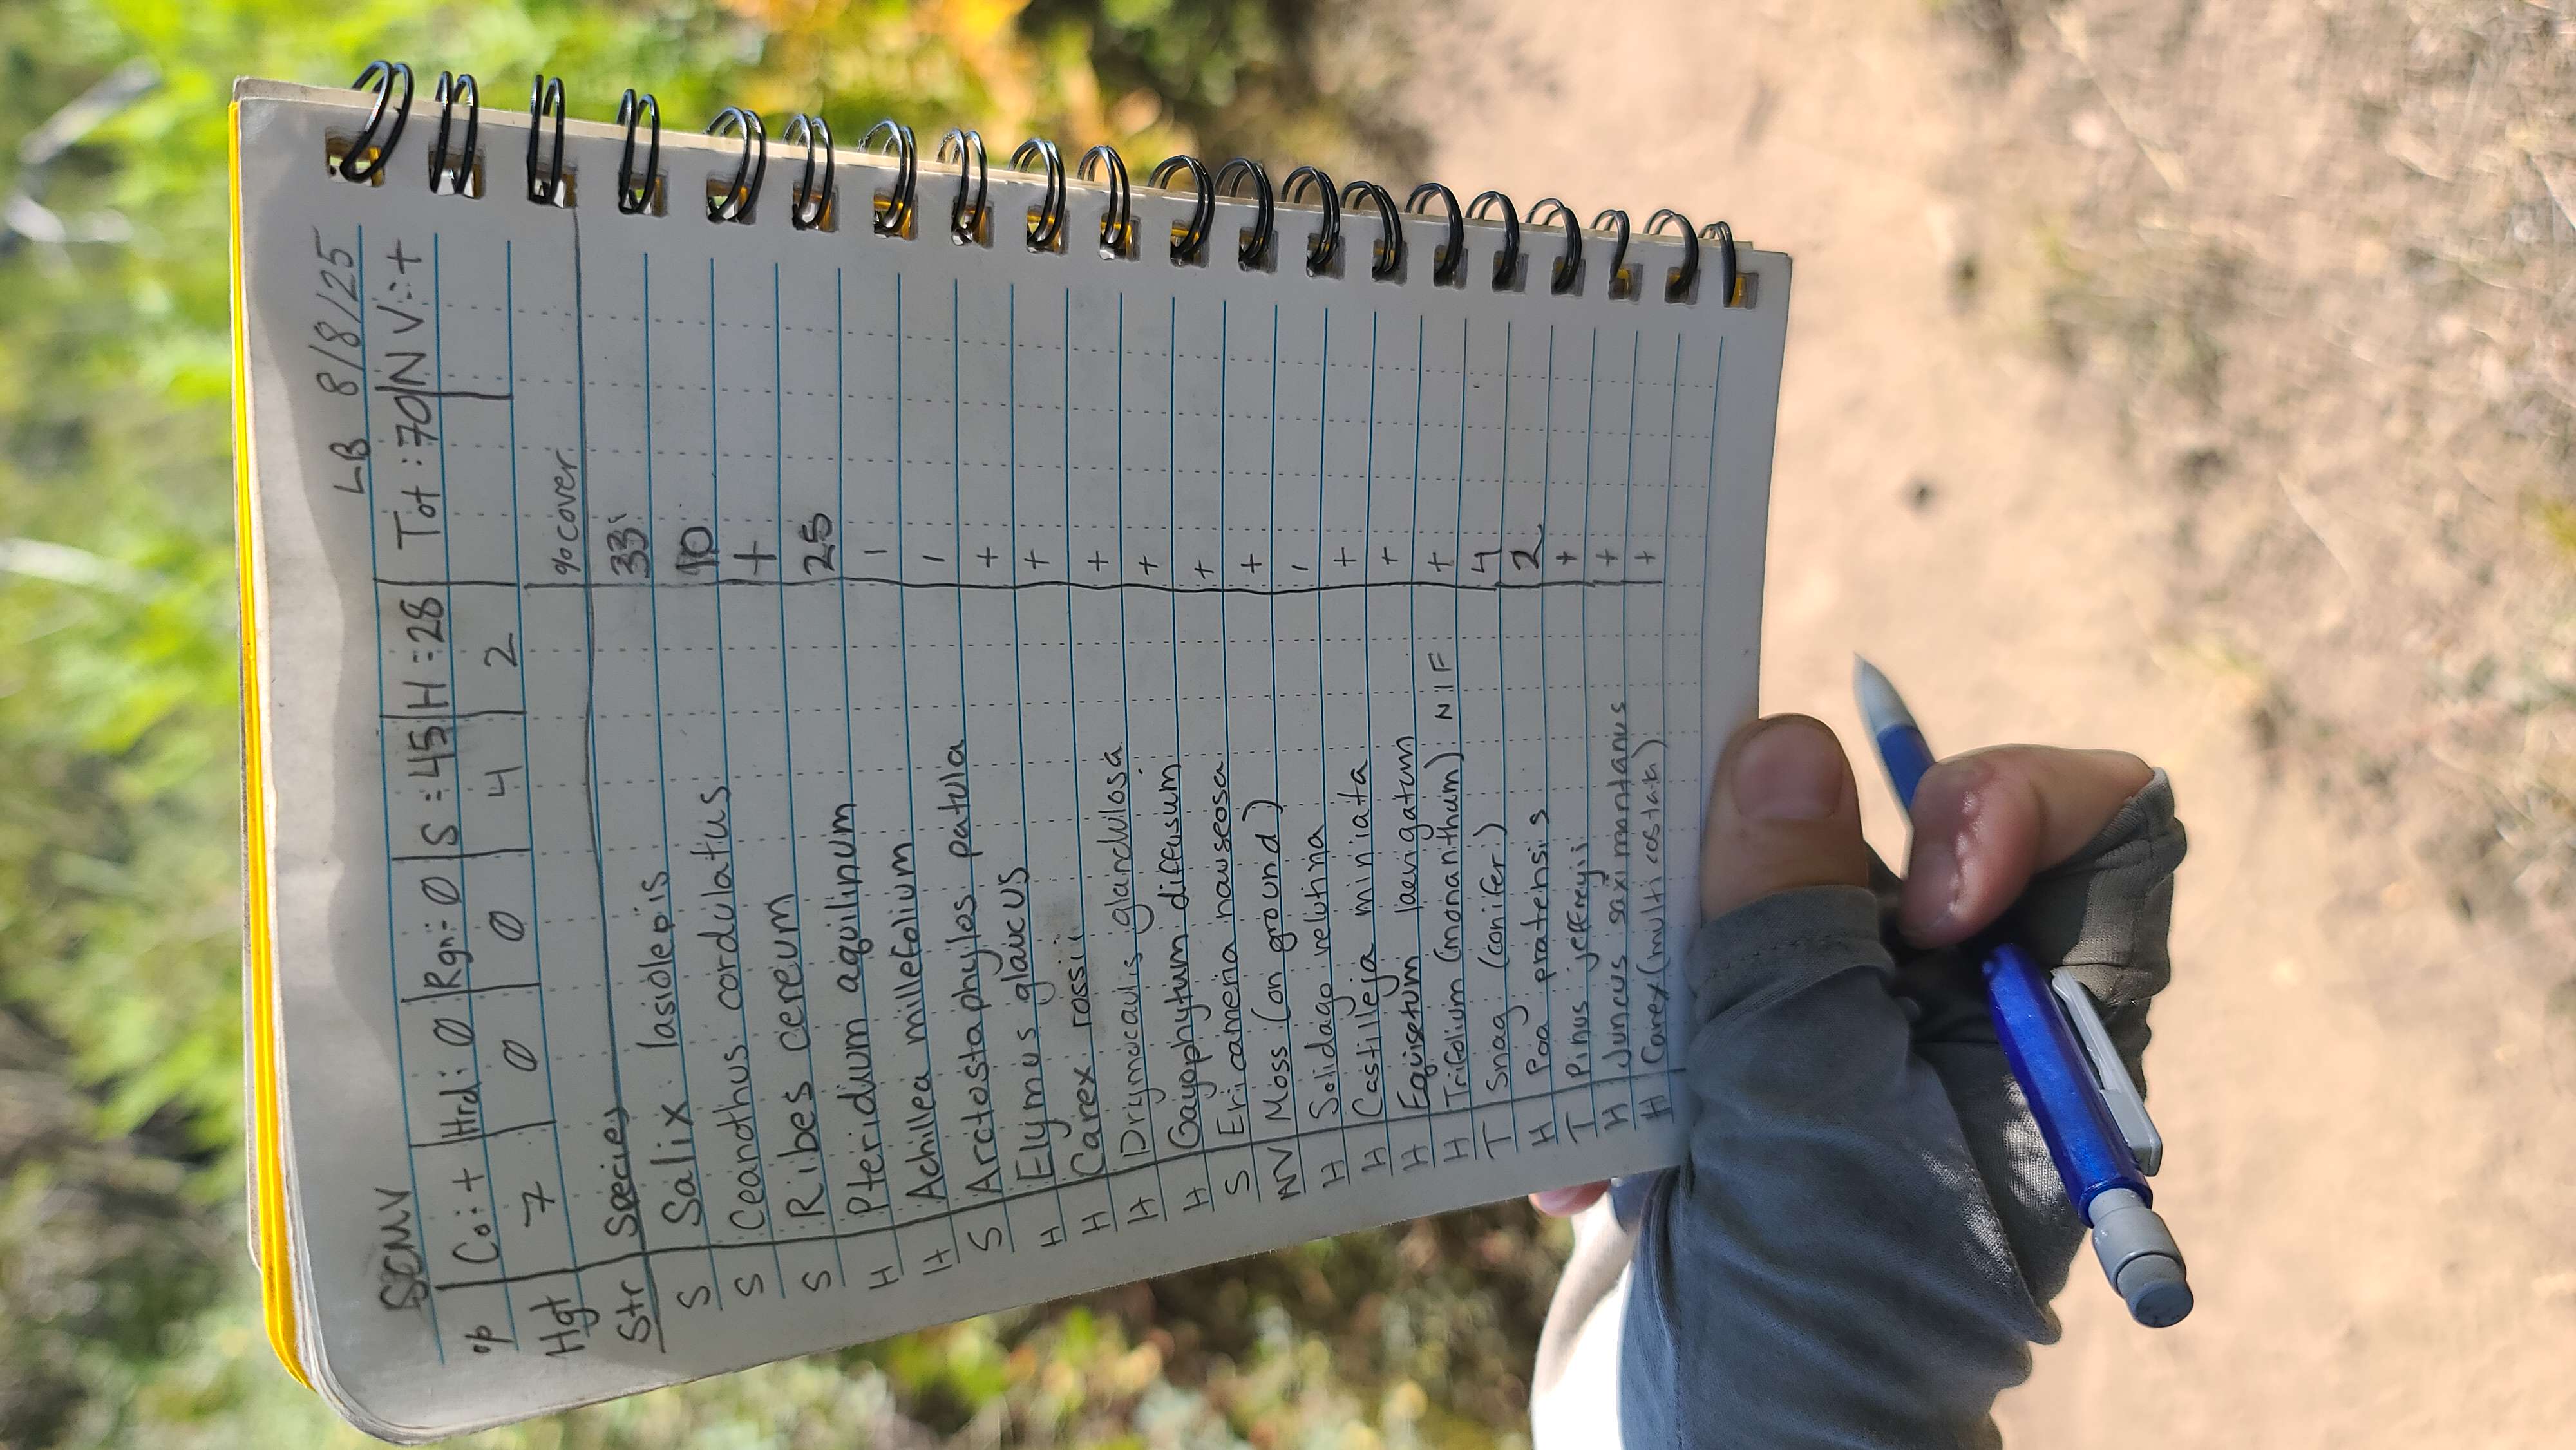 SCMV LB 8/8/25
% Co: + Hrd: 0 Rgn: 0 S: 45 H: 28 Tot: 70 NV: +
Hgt 7 0 0 4 2
Str Species % cover
S Salix lasiolepis 33
S Ceanothus cordulatus 10
S Ribes cereum +
H Pteridium aquilinum 25
H Achillea millefolium 1
S Arctostaphylos patula 1
H Elymus glaucus +
H Carex rossii +
H Drymocallis glandulosa +
H Gayophytum diffusum +
S Ericameria nauseosa +
NV Moss (on ground) +
H Solidago velutina 1
H Castilleja miniata +
H Equisetum laevigatum +
H Trifolium (monanthum) NIF +
T Snag (conifer) 4
H Poa pratensis 2
T Pinus jeffreyi +
H Juncus saximontanus +
H Carex (multicostata) +